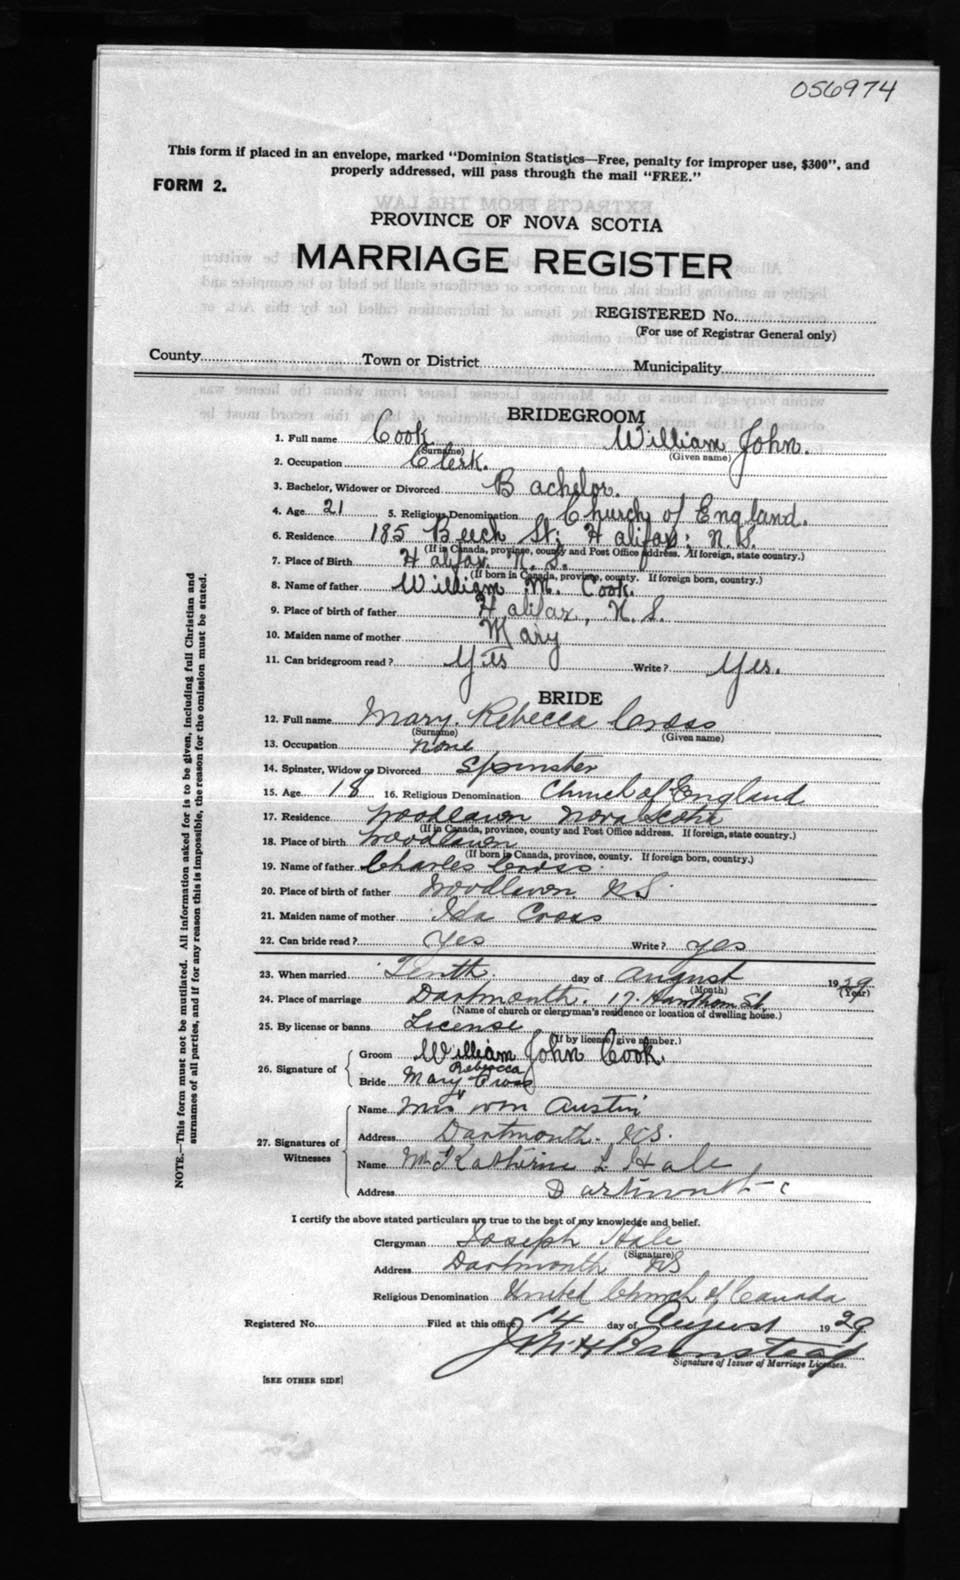 056974
This form if placed in an envelope, marked "Dominion Statistics—Free, penalty for improper use, $300", and
properly addressed, will pass through the mail "FREE."
FORM 2.
PROVINCE OF NOVA SCOTIA
MARRIAGE REGISTER
REGISTERED No.
(For use of Registrar General only)
County Town or District Municipality
BRIDEGROOM
1. Full name Cook William John.
(Surname) (Given name)
2. Occupation Clerk.
3. Bachelor, Widower or Divorced Bachelor.
4. Age 21 5. Religious Denomination Church of England.
6. Residence 185 Beech St; Halifax; N.S.
(If in Canada, province, county and Post Office address. If foreign, state country.)
7. Place of Birth Halifax N.S.
(If born in Canada, province, county. If foreign born, country.)
8. Name of father William M. Cook.
9. Place of birth of father Halifax, N.S.
10. Maiden name of mother Mary
11. Can bridegroom read? Yes Write? Yes.
BRIDE
12. Full name Mary Rebecca Cross
(Surname) (Given name)
13. Occupation none
14. Spinster, Widow or Divorced Spinster
15. Age 18 16. Religious Denomination Church of England
17. Residence Woodlawn Nova Scotia
(If in Canada, province, county and Post Office address. If foreign, state country.)
18. Place of birth Woodlawn
(If born in Canada, province, county. If foreign born, country.)
19. Name of father Charles Cross
20. Place of birth of father Woodlawn NS
21. Maiden name of mother Ida Cross
22. Can bride read? Yes Write? yes
23. When married Tenth day of August 1929
(Month) (Year)
24. Place of marriage Dartmouth. 17. Hawthorn St,
(Name of church or clergyman's residence or location of dwelling house.)
25. By license or banns License
(If by license, give number.)
26. Signature of
Groom William John Cook.
Bride Mary Rebecca Cross
27. Signatures of Witnesses
Name Mrs Wm Austin
Address Dartmouth. NS.
Name Katherine L Hale
Address Dartmouth
I certify the above stated particulars are true to the best of my knowledge and belief.
Clergyman Joseph Hale
(Signature)
Address Dartmouth NS
Religious Denomination United Church of Canada
Registered No. Filed at this office 14 day of August 1929
Signature of Issuer of Marriage Licenses.
[SEE OTHER SIDE]
NOTE.—This form must not be mutilated. All information asked for is to be given, including full Christian and
surnames of all parties, and if for any reason this is impossible, the reason for the omission must be stated.